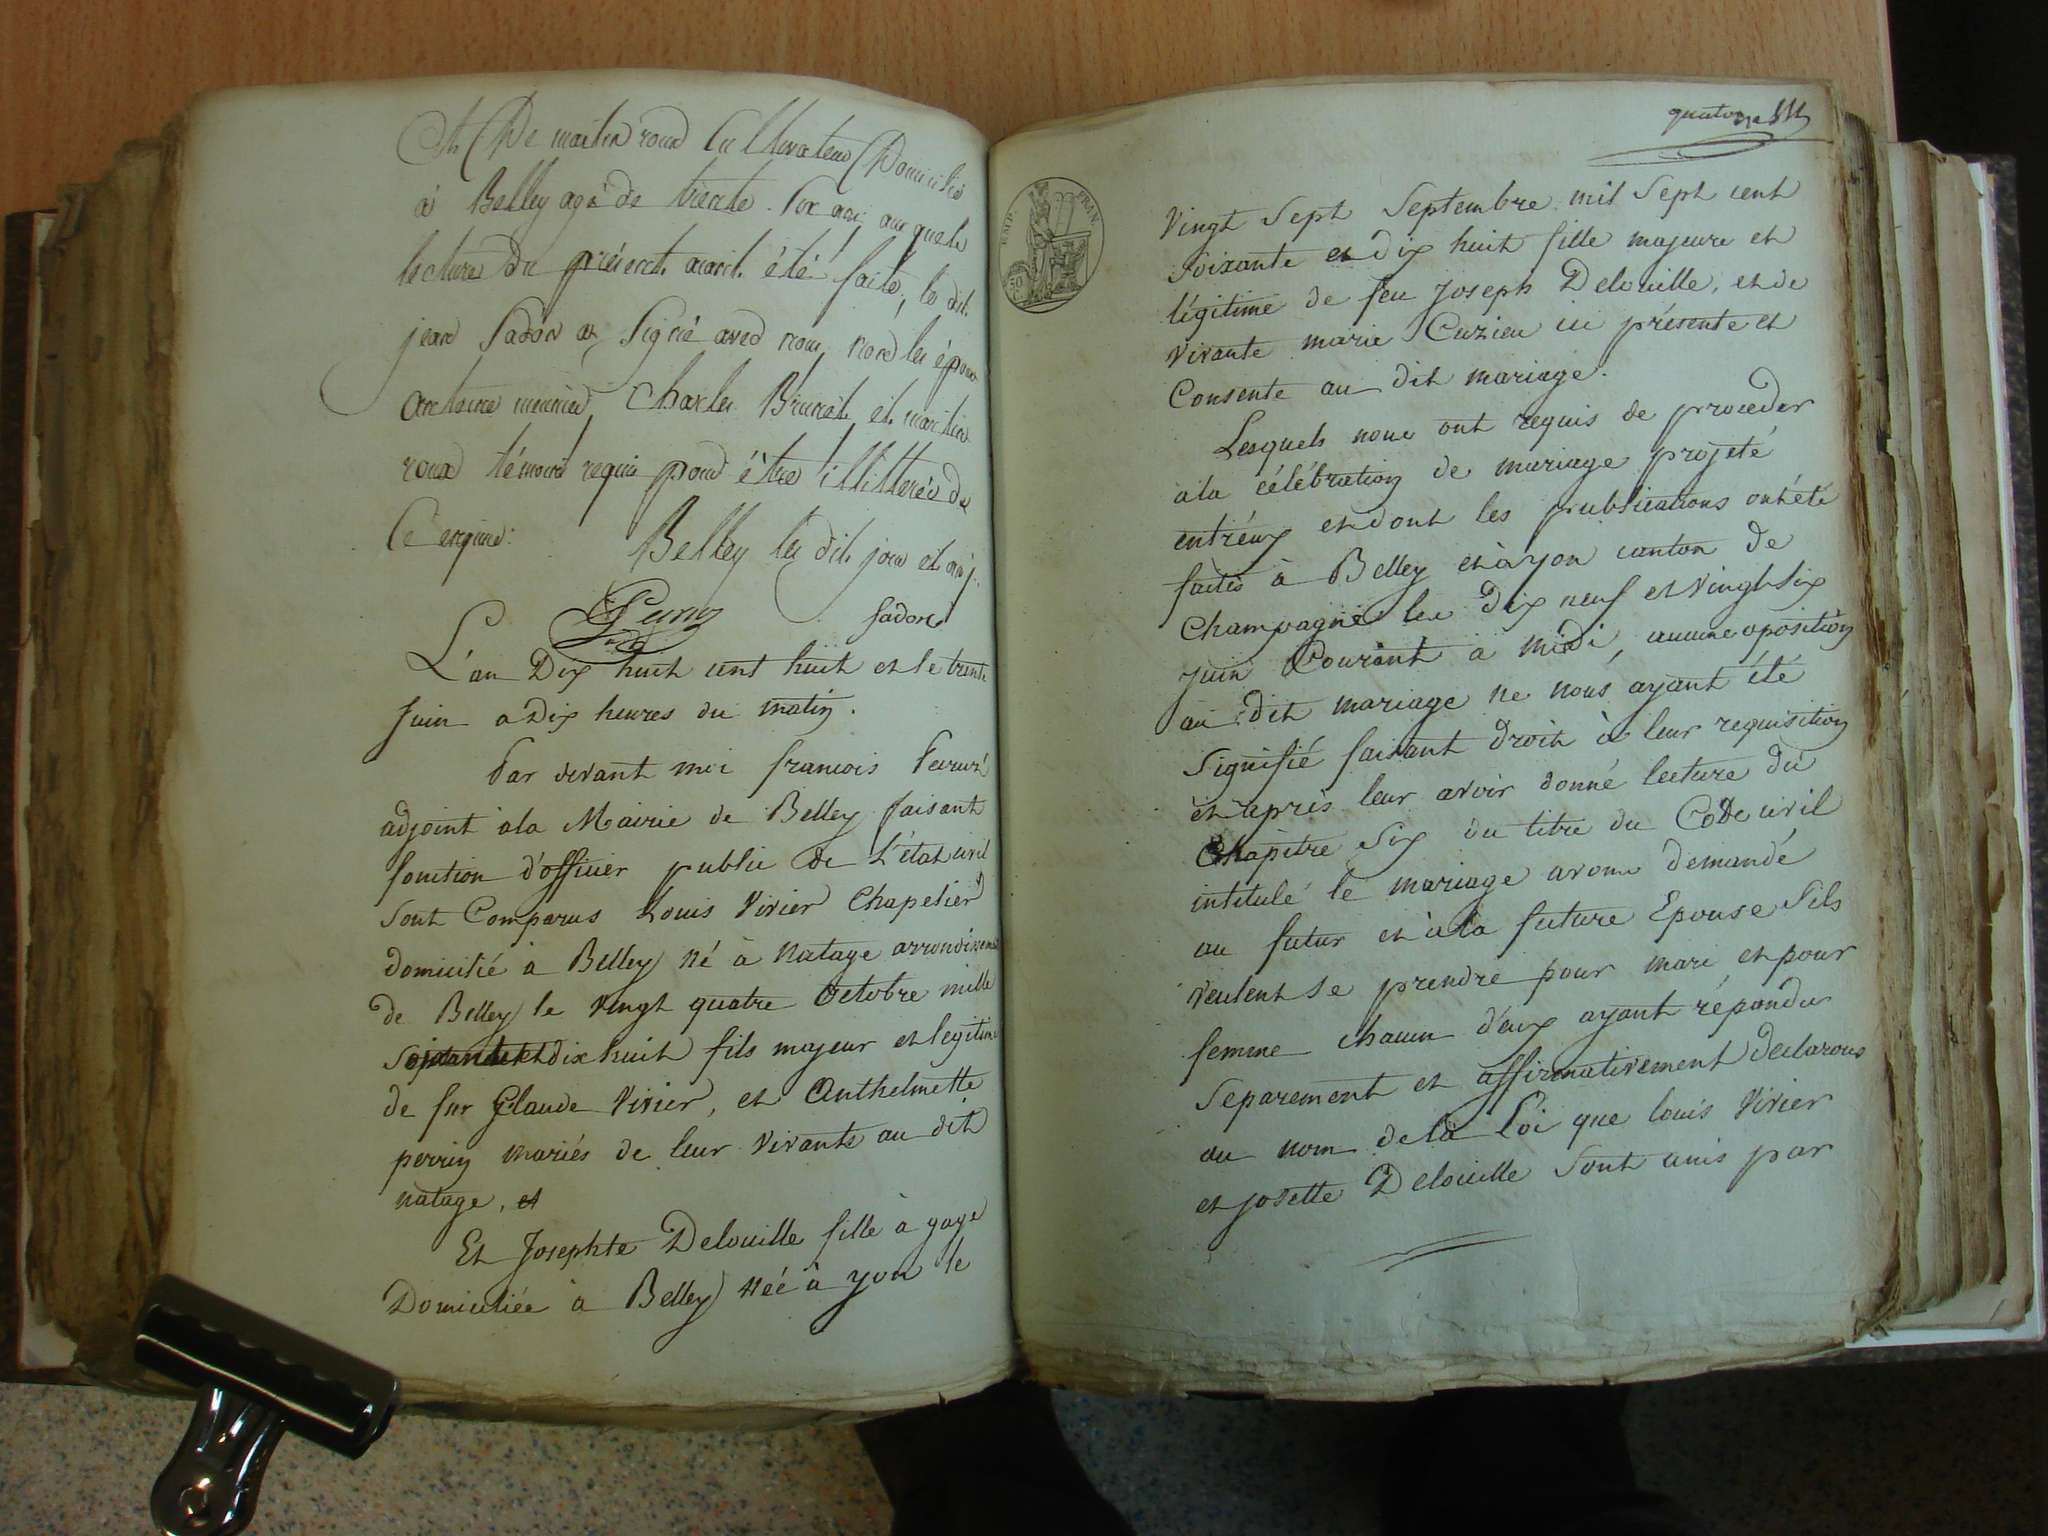 Et De martin roux Cultivateur Domicilié
à Belley agé de trente six ans auxquels
lecture du présent aiant été faite, le dit
jean Sadon a Signé avec nous non les époux
antoine meunier Charles Brunet et martin
roux témoins requis pour être illitterés de
Ce enquis:
Belley les dit jour et an
Sadon
L'an Dix huit cent huit et le trente
Juin a Dix heures du matin.
Par devant moi francois
adjoint à la Mairie de Belley faisant
fonction d'officier public de L'état civil
Sont Comparus Louis Vivier Chapelier
domicilié à Belley né à Natage arrondissement
de Belley le Vingt quatre Octobre mille
Soixante et dix huit fils majeur et legitime
de feu Glaude Vivier, et Anthelmette
perrin mariés de leur vivants au dit
natage, et
Et Josephte Delouille fille à gage
Domiciliée à Belley Née à yon le
quatorze
EMP. FRAN.
Vingt Sept Septembre mil Sept cent
Soixante et dix huit fille majeure et
légitime de feu Joseph Delouille, et de
vivante marie Cuzieu ici présente et
Consente au dit mariage.
Lesquels nous ont requis de proceder
a la célébration de mariage projeté
entréux et dont les publications ont été
faites à Belley et à yon canton de
Champagne les Dix neuf et Vingt Six
juin Courant à midi, aucune oposition
au dit mariage ne nous ayant été
Signifié faisant droit à leur requisition
et après leur avoir donné lecture du
Chapitre Six du titre du Code civil
intitulé le mariage avons demandé
au futur et à la future Epouse Sils
veulent se prendre pour mari et pour
femme chacun d'eux ayant répondu
Separement et affirmativement declarons
au nom de la Loi que louis Vivier
et josette Delouille Sont unis par